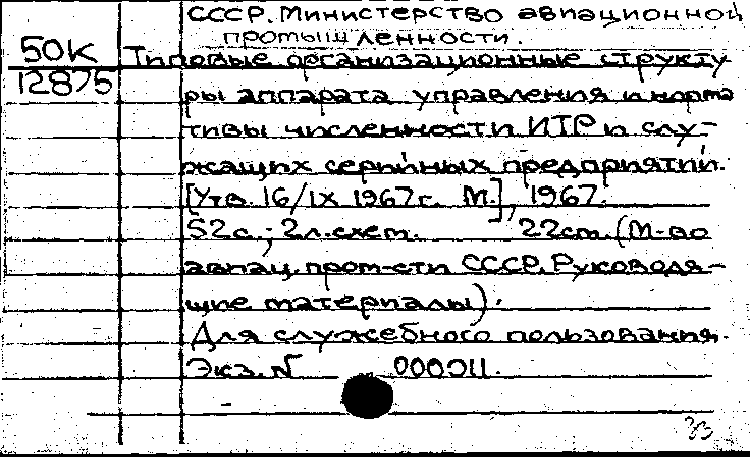 СССР. Министерство авиационной
промышленности.
50К
12875
Типовые организационные структу-
ры аппарата управления и норма
тивы численности ИТР и слу-
жащих серийных предприятий.
[Утв. 16/IX 1967г. М.], 1967.
52с.; 2л.схем. 22см. (М-во
авиац. пром-сти СССР. Руководя-
щие материалы).
Для служебного пользования.
Экз. № 000011.